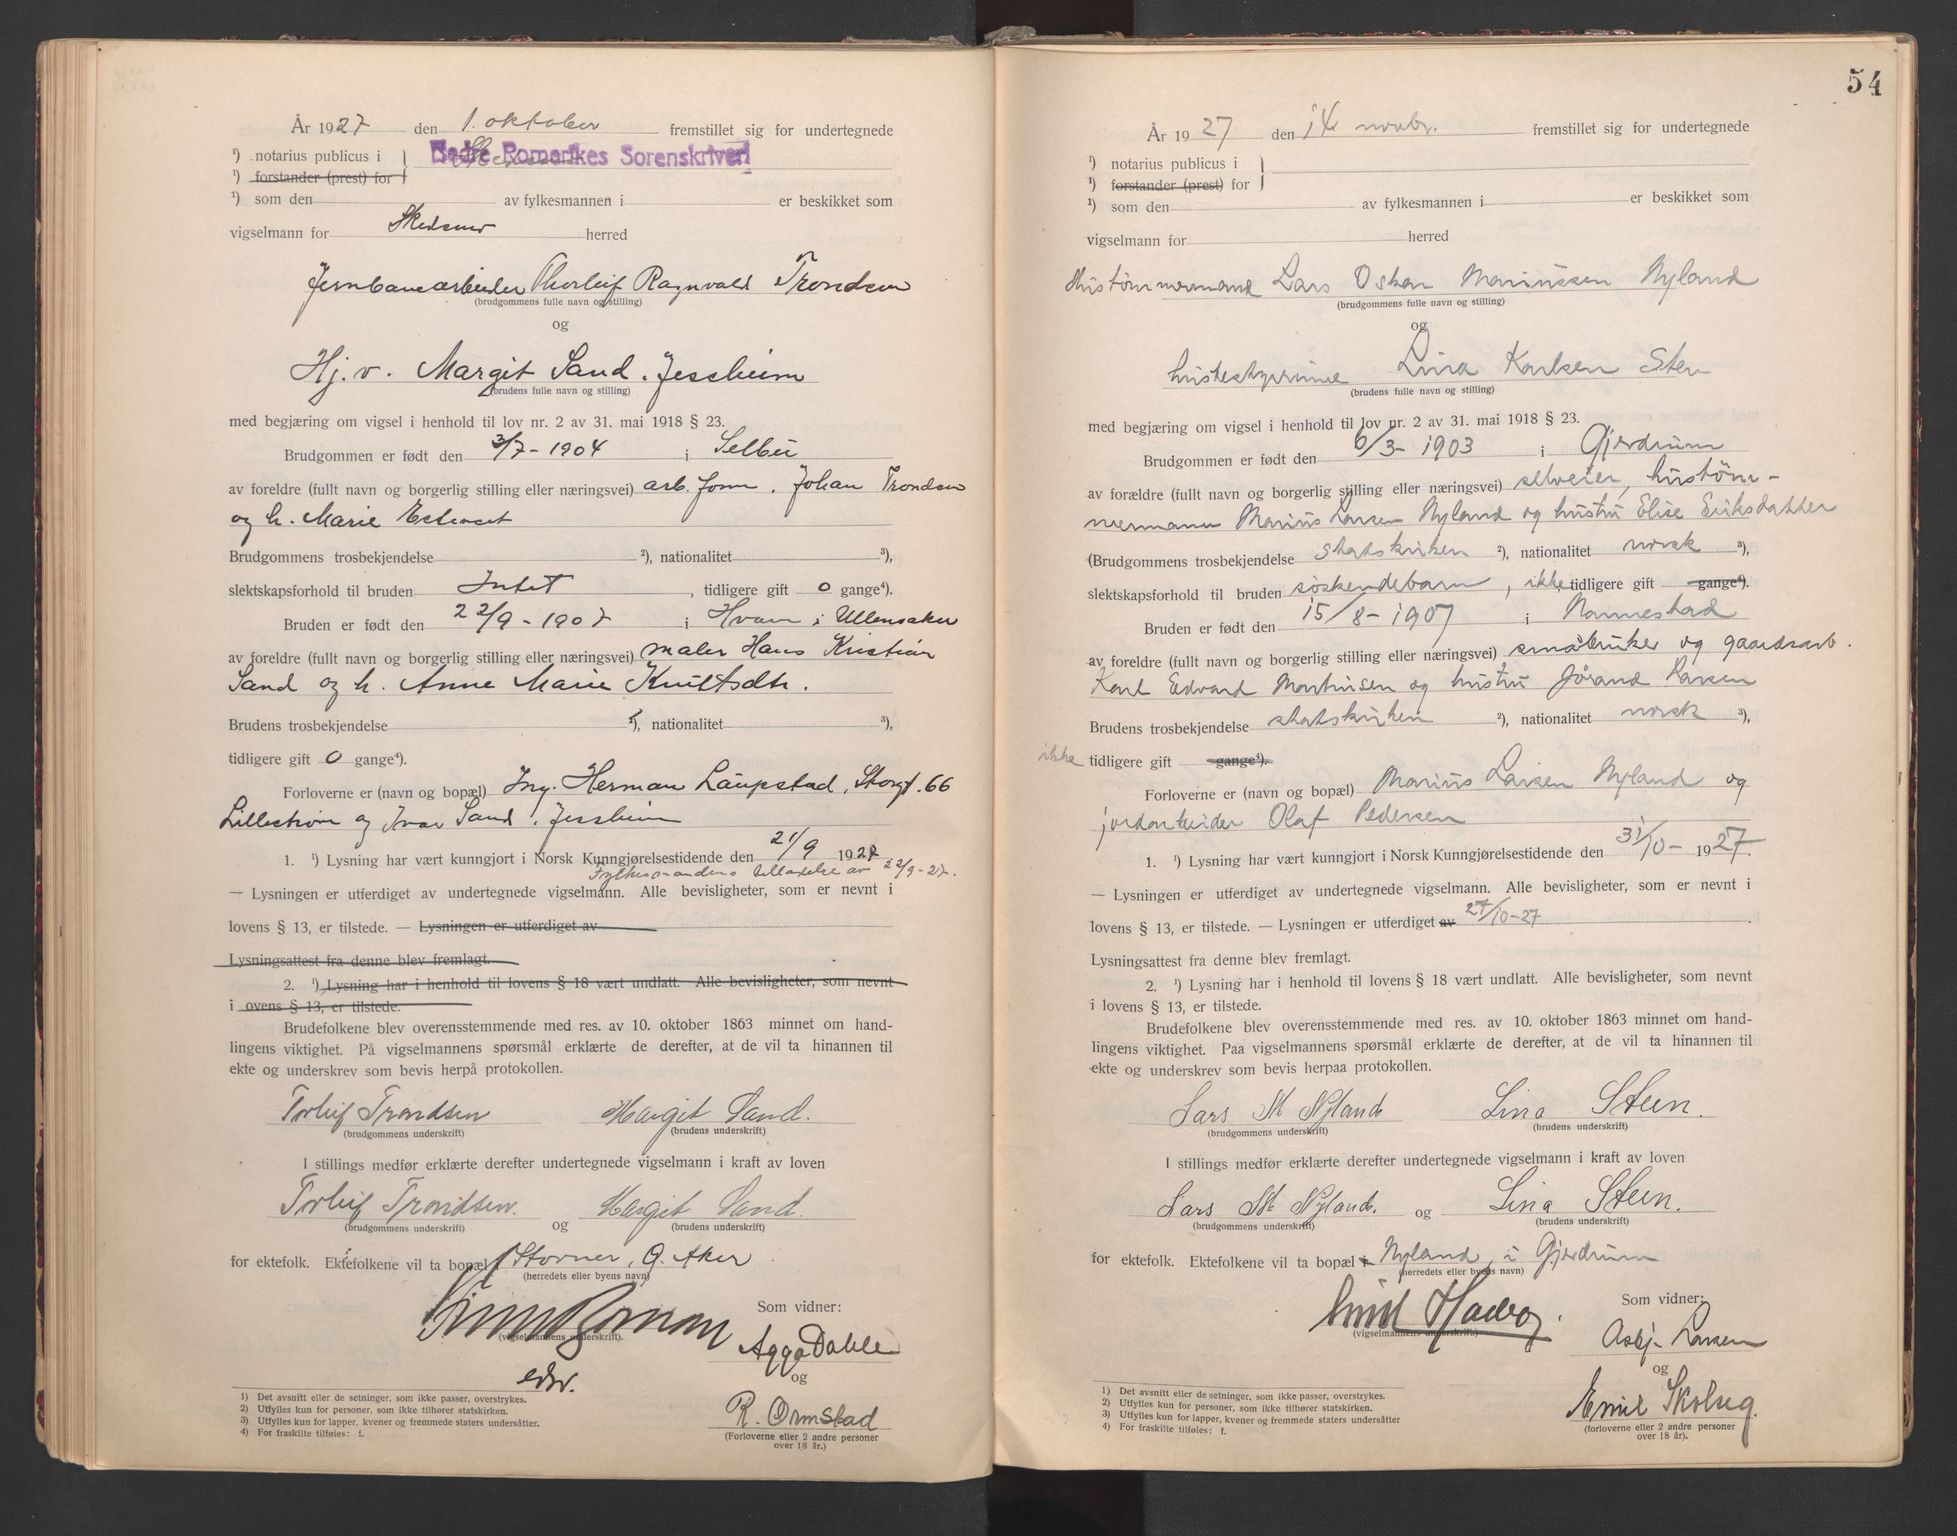 År 1927 den 1. oktober fremstillet sig for undertegnede
¹) notarius publicus i Nedre Romerikes Sorenskriveri
¹) forstander (prest) for
¹) som den av fylkesmannen i er beskikket som
vigselmann for Skedsmo herred
Jernbanearbeider Thorleif Ragnvald Trondsen
(brudgommens fulle navn og stilling)
og
Hj.v. Margit Sand. Jessheim
(brudens fulle navn og stilling)
med begjæring om vigsel i henhold til lov nr. 2 av 31. mai 1918 § 23.
Brudgommen er født den 3/7-1904 i Selbu
av foreldre (fullt navn og borgerlig stilling eller næringsvei) arb. form. Johan Trondsen
og h. Marie
Brudgommens trosbekjendelse ²), nationalitet ³),
slektskapsforhold til bruden Intet, tidligere gift 0 gange⁴).
Bruden er født den 22/9-1907 i Hvam i Ullensaker
av foreldre (fullt navn og borgerlig stilling eller næringsvei) maler Hans Kristian
Sand og h. Anne Marie Knutsdtr.
Brudens trosbekjendelse ²), nationalitet ³),
tidligere gift 0 gange⁴).
Forloverne er (navn og bopæl) Ing. Herman Laupstad, Storgt. 66
Lillestrøm og Ivar Sand. Jessheim
1. ¹) Lysning har vært kunngjort i Norsk Kunngjørelsestidende den 21/9 1927
Fylkesmandens tilladelse av 22/9-27.
— Lysningen er utferdiget av undertegnede vigselmann. Alle bevisligheter, som er nevnt i
lovens § 13, er tilstede. — Lysningen er utferdiget av
Lysningsattest fra denne blev fremlagt.
2. ¹) Lysning har i henhold til lovens § 18 vært undlatt. Alle bevisligheter, som nevnt
i lovens § 13, er tilstede.
Brudefolkene blev overensstemmende med res. av 10. oktober 1863 minnet om hand-
lingens viktighet. På vigselmannens spørsmål erklærte de derefter, at de vil ta hinannen til
ekte og underskrev som bevis herpå protokollen.
Torleif Trondsen Margit Sand.
(brudgommens underskrift) (brudens underskrift)
I stillings medfør erklærte derefter undertegnede vigselmann i kraft av loven
Torleif Trondsen. Margit Sand.
(brudgommens underskrift) og (brudens underskrift)
for ektefolk. Ektefolkene vil ta bopæl i Stovner, Ø. Aker
(herredets eller byens navn)
Som vidner:
(vigselmannens underskrift).
Aggo Dahle
edsv.
og
R. Ormstad
(Forloverne eller 2 andre personer
over 18 år.)
1) Det avsnitt eller de setninger, som ikke passer, overstrykes.
2) Utfylles kun for personer, som ikke tilhører statskirken.
3) Utfylles kun for lapper, kvener og fremmede staters undersåtter.
4) For fraskilte tilføies: f.
54
År 1927 den 14 novbr. fremstillet sig for undertegnede
¹) notarius publicus i
¹) forstander (prest) for
¹) som den av fylkesmannen i er beskikket som
vigselmann for herred
Hustømmermand Lars Oskar Mariussen Nyland
(brudgommens fulle navn og stilling)
og
husbestyrerinne Lina Karlsen Sten
(brudens fulle navn og stilling)
med begjæring om vigsel i henhold til lov nr. 2 av 31. mai 1918 § 23.
Brudgommen er født den 6/3-1903 i Gjerdrum
av forældre (fullt navn og borgerlig stilling eller næringsvei) selveier, hustøm-
mermann Marius Larsen Nyland og hustru Elise Eriksdatter
(Brudgommens trosbekjendelse statskirken ²), nationalitet norsk ³),
slektskapsforhold til bruden søskendebarn, ikke tidligere gift gange⁴).
Bruden er født den 15/8-1907 i Nannestad
av foreldre (fullt navn og borgerlig stilling eller næringsvei) småbruker og gaardsarb.
Karl Edvard Martinsen og hustru Jørand Larsen
Brudens trosbekjendelse statskirken ²), nationalitet norsk ³),
ikke tidligere gift gange⁴).
Forloverne er (navn og bopæl) Marius Larsen Nyland og
jordarbeider Olaf Pedersen
1. ¹) Lysning har vært kunngjort i Norsk Kunngjørelsestidende den 31/10- 1927.
— Lysningen er utferdiget av undertegnede vigselmann. Alle bevisligheter, som er nevnt i
lovens § 13, er tilstede. — Lysningen er utferdiget av 27/10-27
Lysningsattest fra denne blev fremlagt.
2. ¹) Lysning har i henhold til lovens § 18 vært undlatt. Alle bevisligheter, som nevnt
i lovens § 13, er tilstede.
Brudefolkene blev overensstemmende med res. av 10. oktober 1863 minnet om hand-
lingens viktighet. Paa vigselmannens spørsmål erklærte de derefter, at de vil ta hinannen til
ekte og underskrev som bevis herpaa protokollen.
Lars M Nyland Lina Steen.
(brudgommens underskrift) (brudens underskrift)
I stillings medfør erklærte derefter undertegnede vigselmann i kraft av loven
Lars M Nyland. og Lina Steen.
(brudgommens underskrift) (brudens underskrift)
for ektefolk. Ektefolkene vil ta bopæl i Nyland, i Gjerdrum
(herredets eller byens navn)
Som vidner:
(vigselmannens underskrift.)
Asbj. Larsen
og
Emil
(forloverne eller 2 andre personer
over 18 år).
1) Det avsnitt eller de setninger, som ikke passer, overstrykes.
2) Utfylles kun for personer, som ikke tilhører statskirken.
3) Utfylles kun for lapper, kvener og fremmede staters undersåtter
4) For fraskilte tilføies: f.